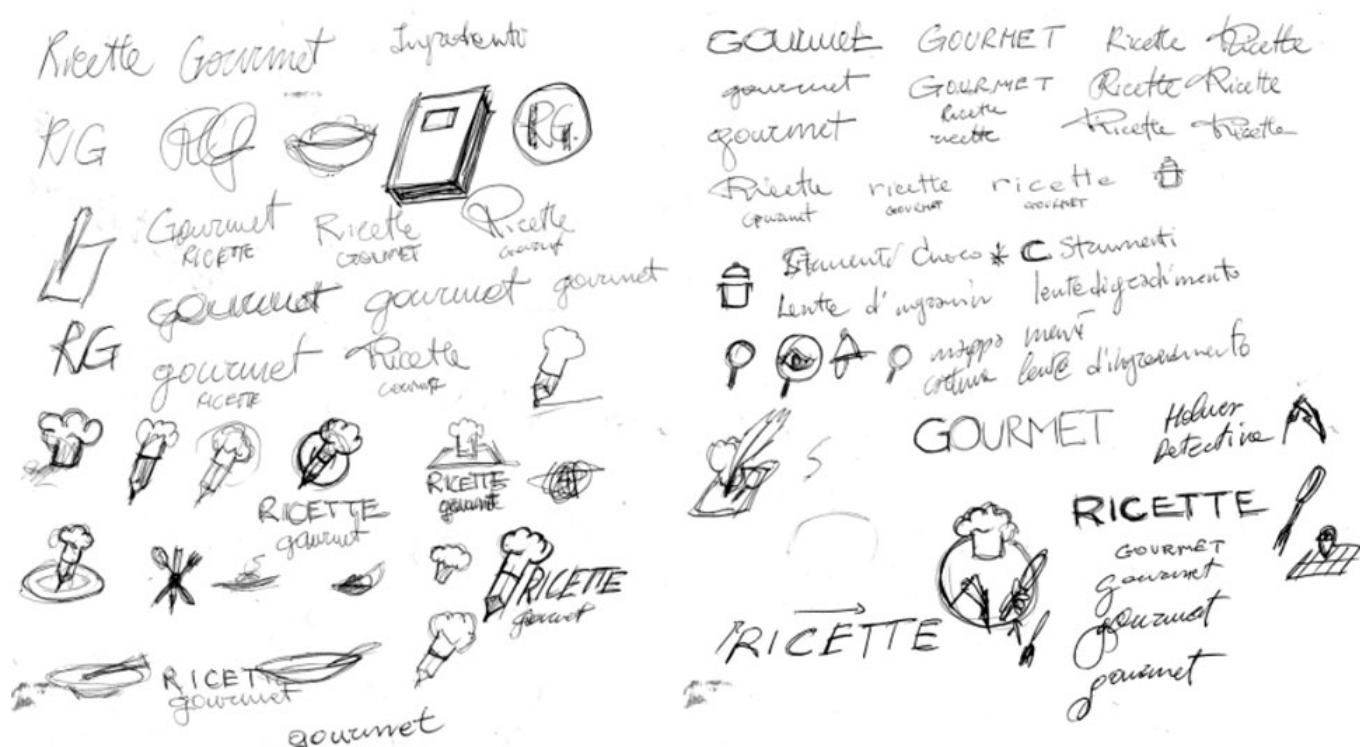 Ricette Gourmet
Ingredienti
RG
RG
RG.
Gourmet
RICETTE
Ricette
GOURMET
Ricette
Gourmet
gourmet gourmet gourmet
RG
gourmet
RICETTE
Ricette
Gourmet
RICETTE
gourmet
RICETTE
gourmet
RICETTE
gourmet
RICETTE
gourmet
gourmet
GOURMET GOURMET Ricette Ricette
gourmet GOURMET Ricette Ricette
Ricette
gourmet ricette Ricette Ricette
Ricette ricette ricette
Gourmet GOURMET GOURMET
Strumenti Cuoco C Strumenti
Lente d'
mappa menù
lente d'ingrandimento
GOURMET
Detective
RICETTE
GOURMET
gourmet
gourmet
gourmet
RICETTE